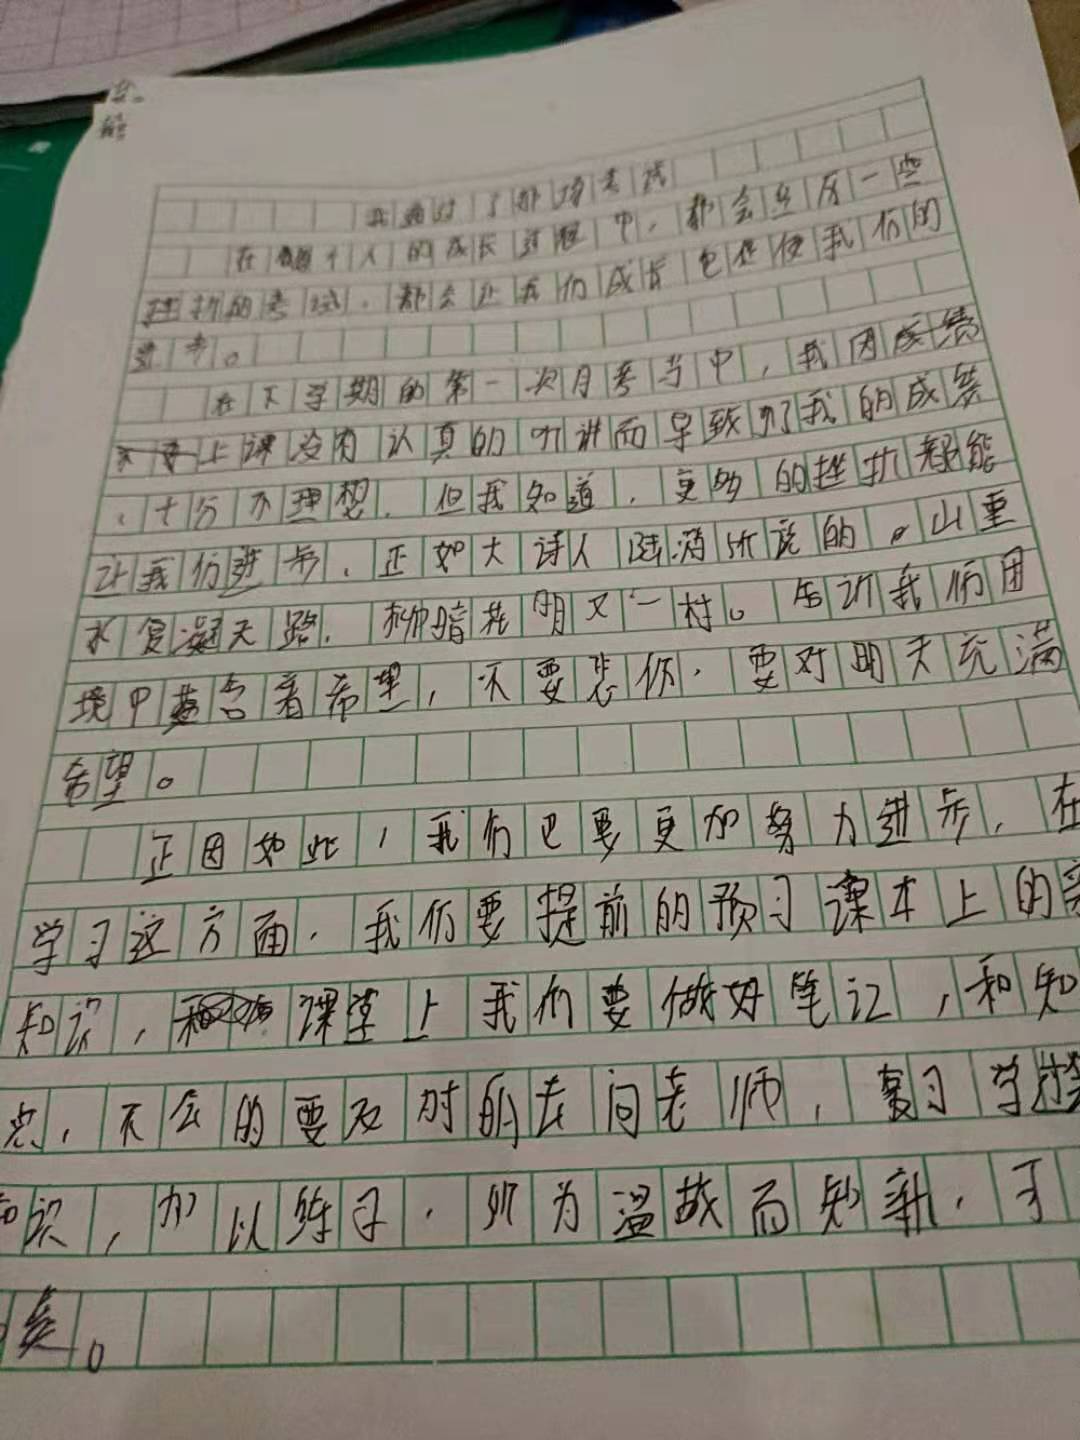 我通过了那场考试
在每个人的成长过程中，都会经历一些
挫折的考试，都会让我们成长也促使我们的
进步。
在下学期的第一次月考当中，我因成绩
上课没有认真的听讲而导致了我的成绩
，十分不理想，但我知道，更多的挫折都能
让我们进步，正如大诗人陆游所说的，山重
水复疑无路，柳暗花明又一村。告诉我们困
境中蕴含着希望，不要悲伤，要对明天充满
希望。
正因如此，我们也要更加努力进步，在
学习这方面，我们要提前的预习课本上的新
知识，课堂上我们要做好笔记，和知
点，不会的要及时的去问老师，复习学过
知识，加以练习，所为温故而知新，可
矣。